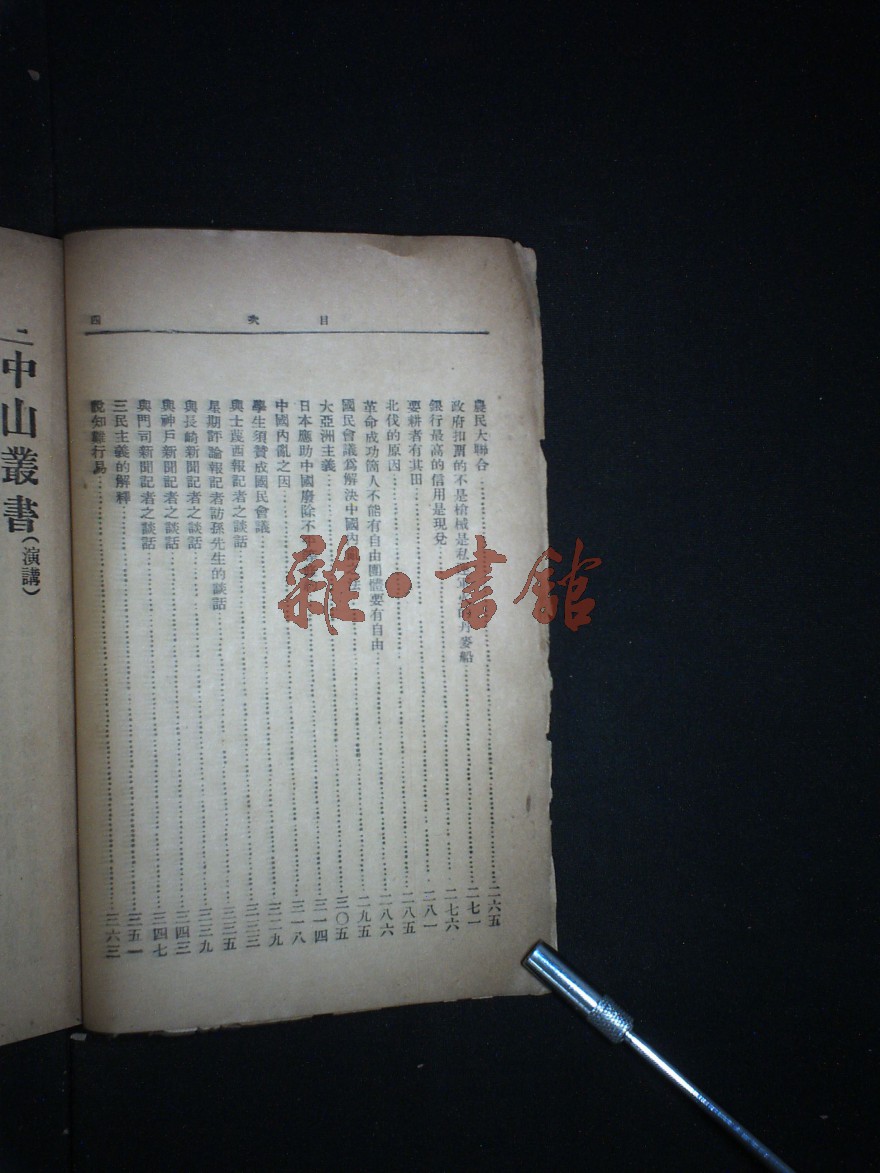 目次 四
農民大聯合……二六五
政府扣畱的不是槍械是私 軍 丹麥船……二七一
銀行最高的信用是現兌……二七六
要耕者有其田……二八一
北伐的原因……二八五
革命成功箇人不能有自由團體要有自由……二八六
國民會議爲解決中國內……二九五
大亞洲主義……三〇五
日本應助中國廢除不……三一四
中國內亂之因……三一八
學生須贊成國民會議……三二九
與士蔑西報記者之談話……三三三
星期評論報記者訪孫先生的談話……三三五
與長崎新聞記者之談話……三三九
與神戶新聞記者之談話……三四三
與門司新聞記者之談話……三四七
三民主義的解釋……三五一
說知難行易……三六三
二中山叢書（演講）
雜·書館